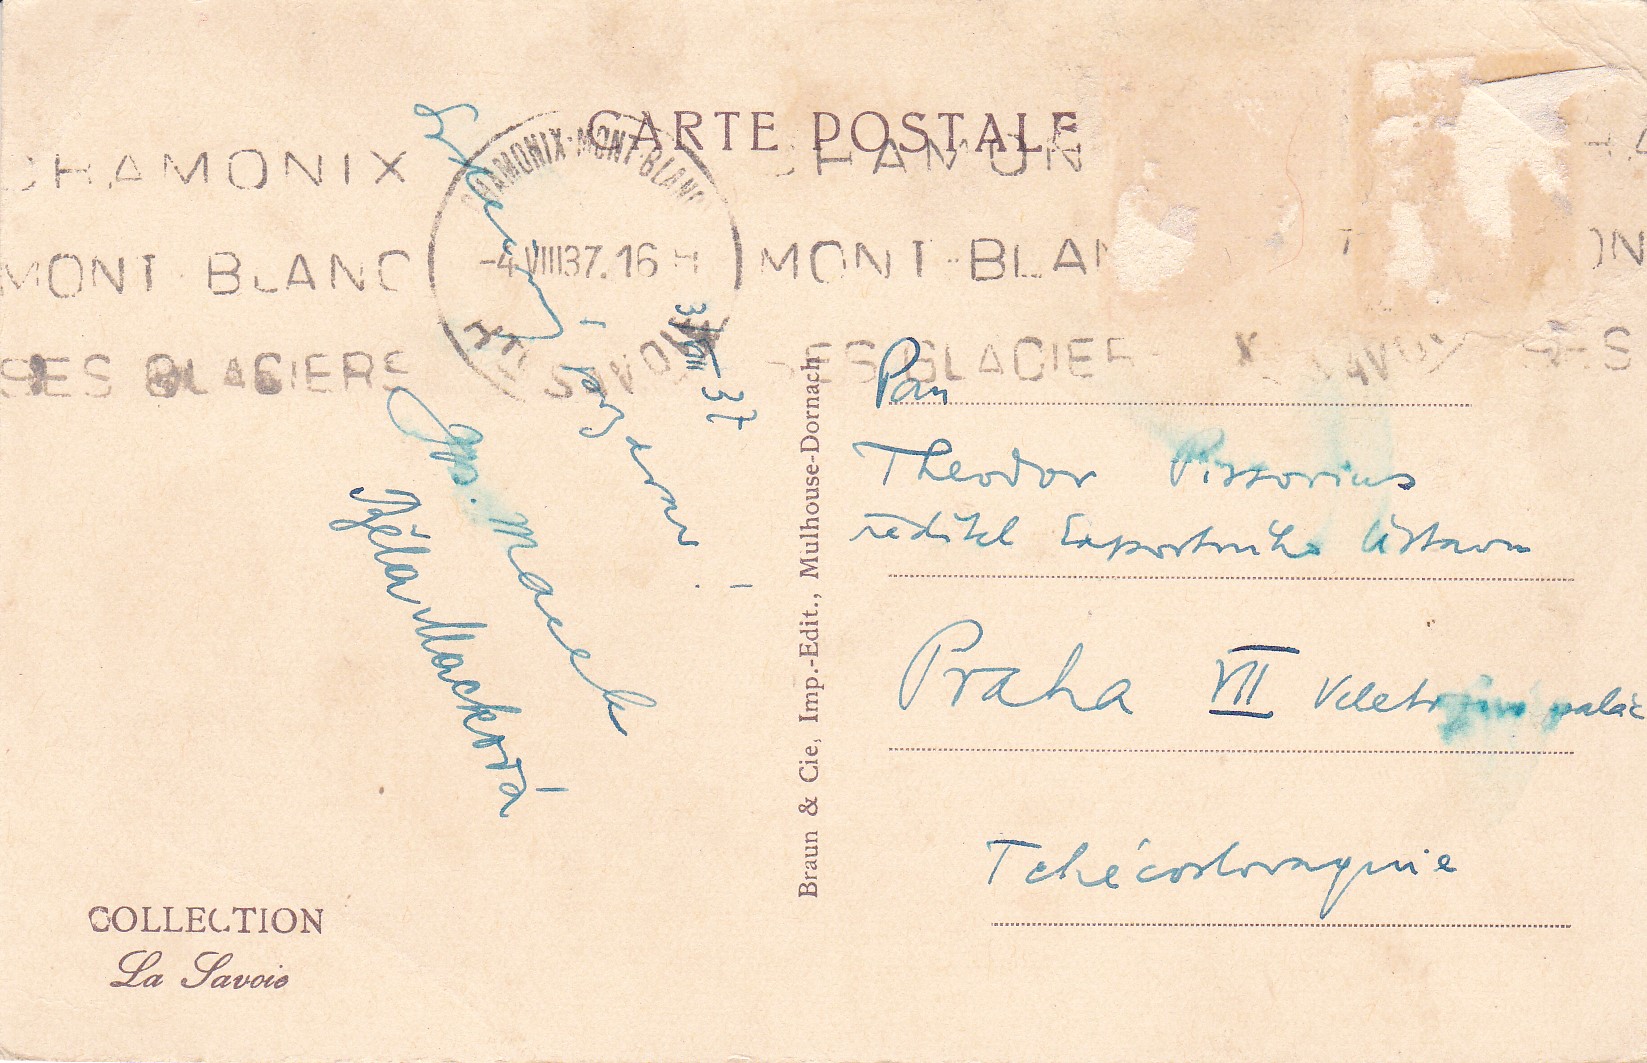 CARTE POSTALE
CHAMONIX
MONT-BLANC
SES GLACIERS
CHAMONIX-MONT-BLANC
-4 VIII 37. 16 H
SAVOIE
CHAMON
MONT-BLAN
SES GLACIER
SAVOIE
SES
3/VIII 37
Srdečný
pozdrav!
Macek
Běla Macková
Braun & Cie, Imp.-Edit., Mulhouse-Dornach
Pan
Theodor Pistorius
ředitel Exportního Ústavu
Praha VII Veletržní palác
Tchécoslovaquie
COLLECTION
La Savoie